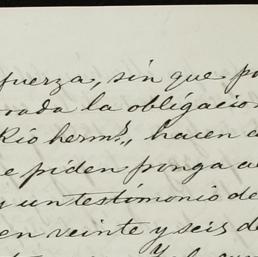 fuerza, sin que po
rada la obligacion
Rio herms., hacen a
e piden ponga a
y un testimonio de
en veinte y seis de